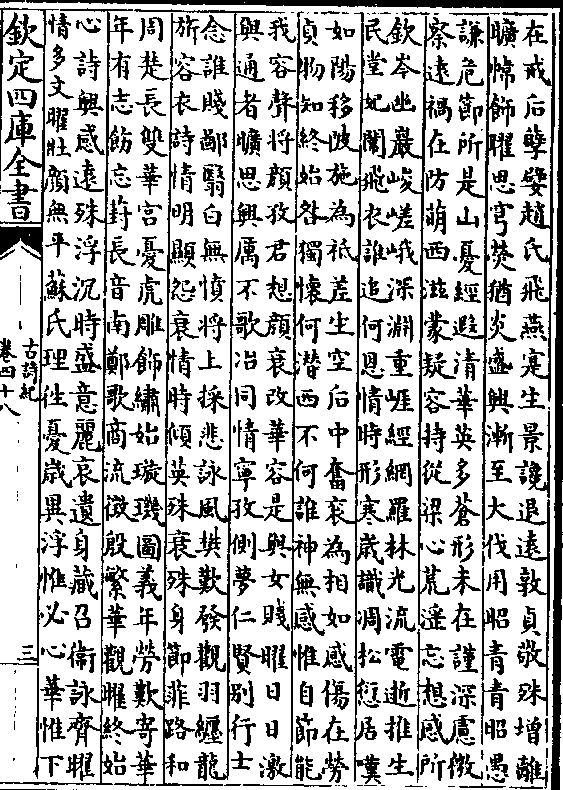 在戒后孽嬖趙氏飛燕寔生景讒退遠敦貞敬殊增離
曠幃飾曜思穹熒猶炎盛興漸至大伐用昭青青昭愚
謙危節所是山憂經遐清華英多蒼形未在謹深慮微
察遠禍在防萌西滋蒙疑容持從梁心荒遥忘想感所
欽岑幽巖峻嵯峨深淵重崖經網羅林光流電逝推生
民堂妃闈飛衣誰追何思情時形寒歲識凋松愆居嘆
如陽移陂施為祗差生空后中奮衰為相如感傷在勞
貞物知終始咎獨懷何潛西不何誰神無感惟自節能
我容聲將顔孜君想顔衰改華容是興女賤曜日日激
興通者曠思興厲不歌冶同情寧孜側夢仁賢别行士
念誰賤鄙翳白無憤將上採悲詠風樊歎發觀羽纏龍
旂容衣詩情明顯怨衰情時傾英殊衰殊身節菲路和
周楚長雙華宮憂虎雕飾繡始璇璣圖義年勞歎寄華
年有志飭忘葑長音南鄭歌商流徵殷繁華觀曜終始
心詩興感遠殊浮沉時盛意麗哀遺身藏召衞詠齊曜
情多文曜壯顔無平蘇氏理往憂歲異浮惟必心華惟下
欽定四庫全書
古詩紀
卷四十八
三